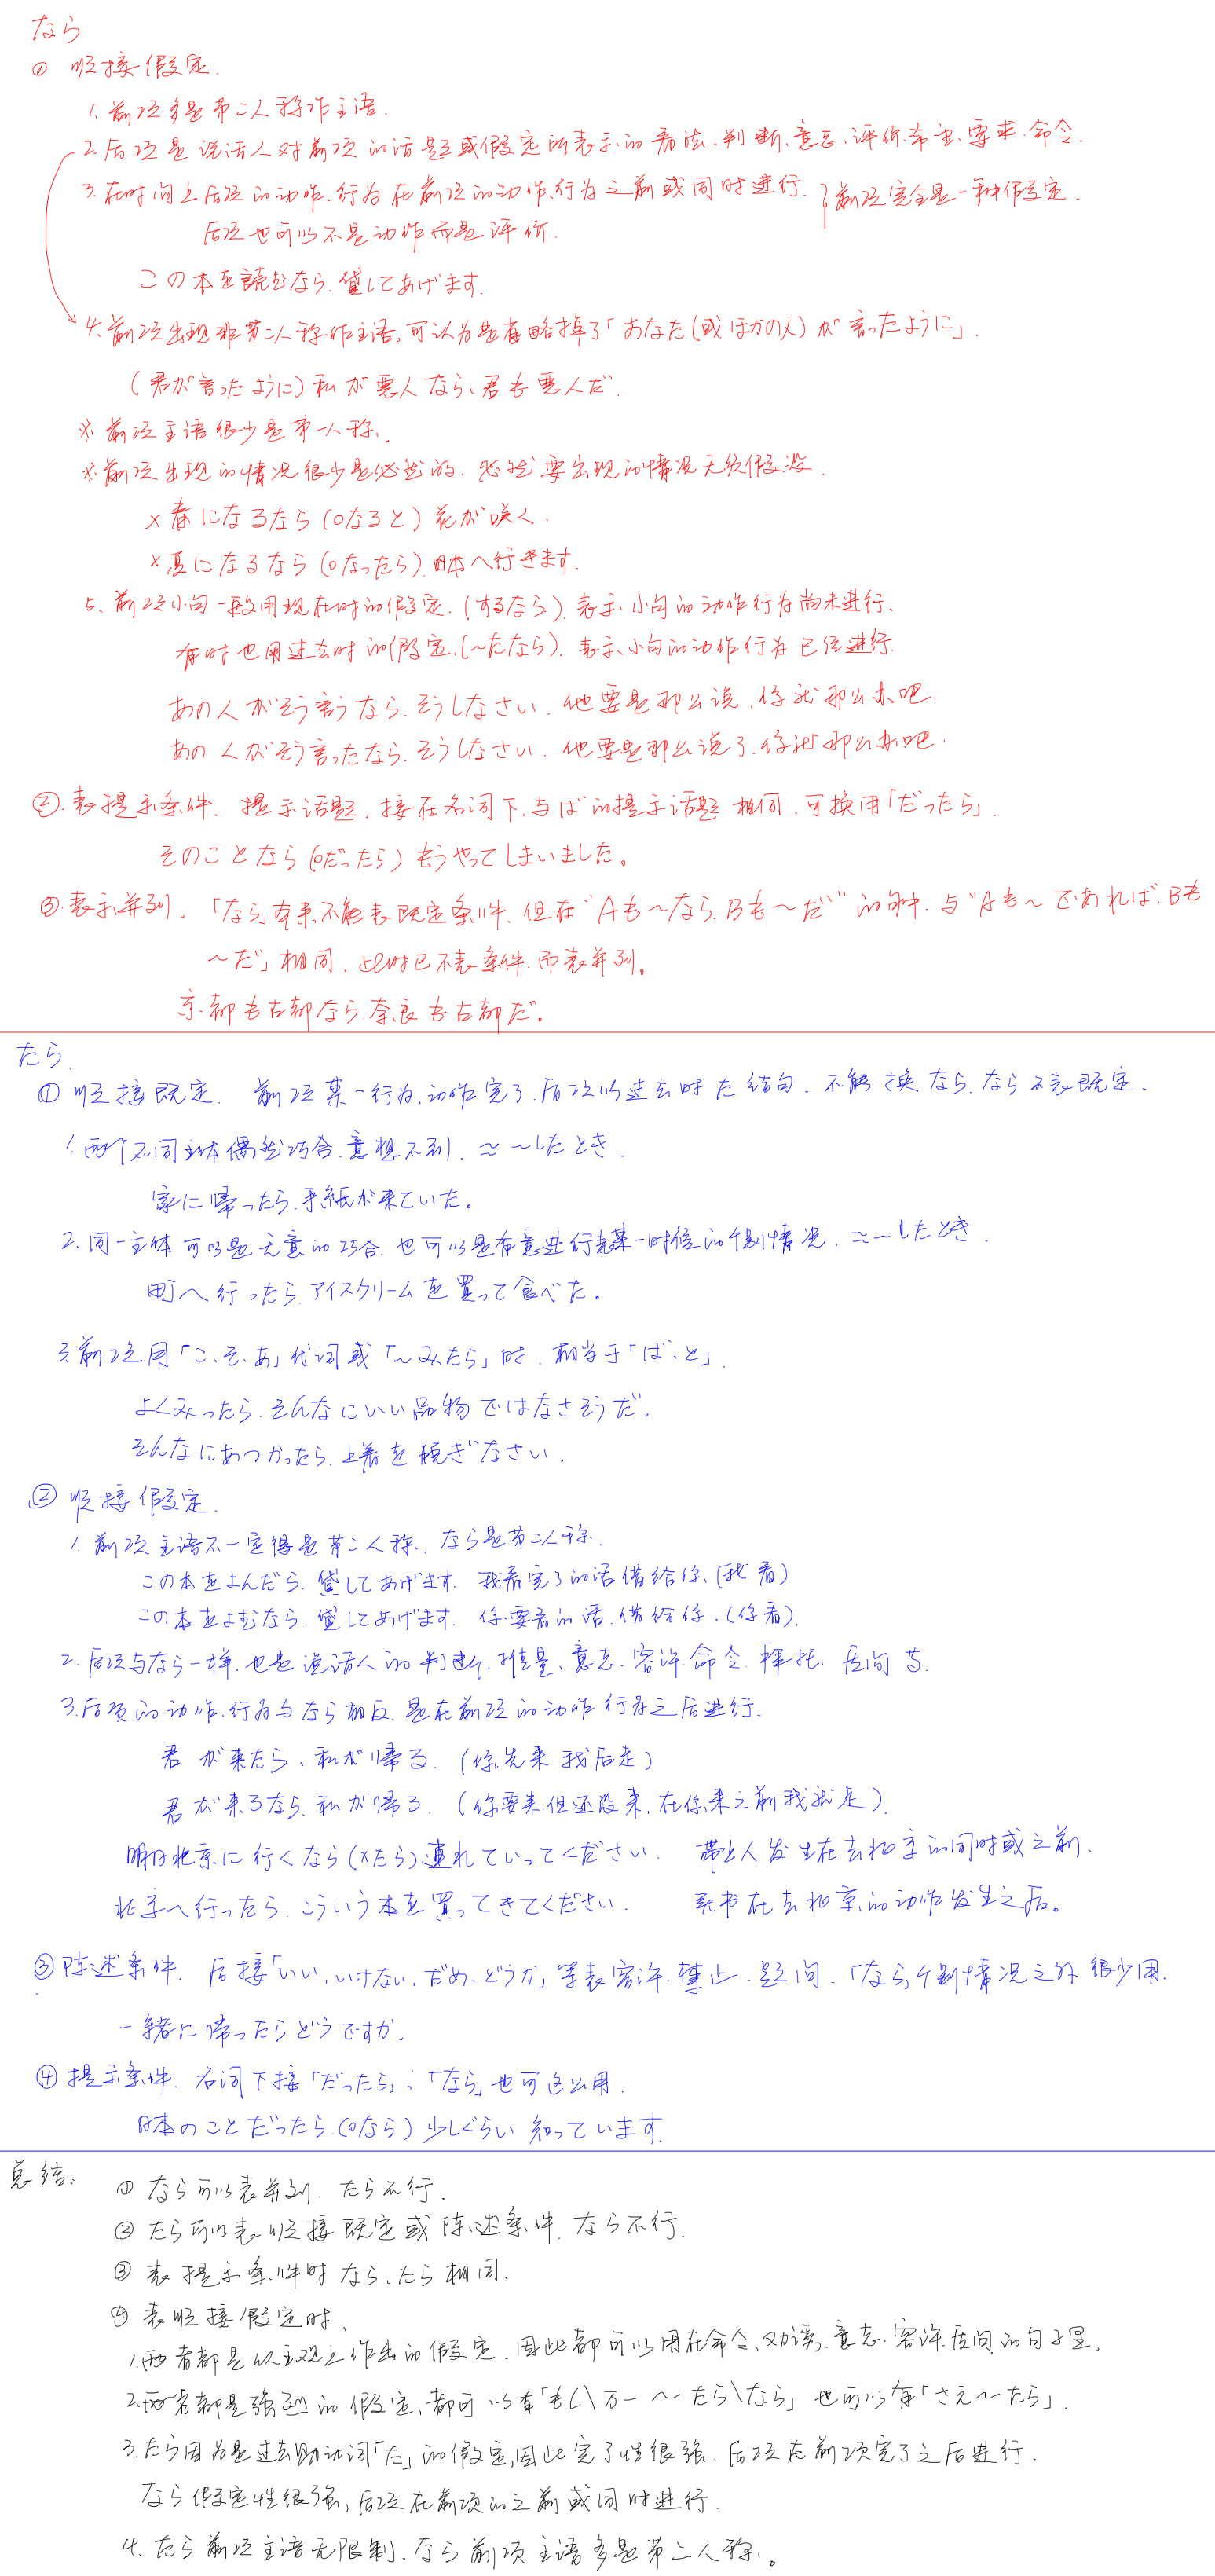 なら
① 顺接假定.
1. 前项多是第二人称作主语.
2. 后项是说话人对前项的话题或假定所表示的看法、判断、意志、评价、希望、要求、命令.
3. 在时间上后项的动作、行为在前项的动作、行为之前或同时进行. } 前项完全是一种假定.
后项也可以不是动作而是评价.
この本を読むなら、貸してあげます.
4. 前项出现非第二人称作主语,可认为是省略掉了「あなた(或ほかの人)が言ったように」.
(君が言ったように) 私が悪人なら、君も悪人だ.
※ 前项主语很少是第一人称、.
※ 前项出现的情况很少是必然的. 必然要出现的情况无须假设.
× 春になるなら (○なると) 花が咲く.
× 夏になるなら (○なったら) 日本へ行きます.
5、前项小句一般用现在时的假定. (するなら). 表示小句的动作行为尚未进行.
有时也用过去时的假定. (~たなら). 表示小句的动作行为已经进行
あの人がそう言うなら、そうしなさい. 他要是那么说、你就那么办吧.
あの人がそう言ったなら、そうしなさい. 他要是那么说了、你就那么办吧.
②. 表提示条件. 提示话题. 接在名词下、与ば的提示话题相同. 可换用「だったら」.
そのことなら (○だったら) もうやってしまいました。
③. 表示并列. 「なら」本来不能表既定条件. 但在"Aも~なら、Bも~だ"的句中. 与"Aも~であれば、Bも
~だ」相同. 此时已不表条件、而表并列。
京都も古都なら、奈良も古都だ。
たら.
① 顺接既定. 前项某一行为、动作完了. 后项以过去时た结句. 不能换なら. なら不表既定.
1. 两个不同主体偶然巧合、意想不到. ≈ ~したとき.
家に帰ったら、手紙が来ていた。
2. 同一主体可以是无意的巧合. 也可以是有意进行完某一时候的个别情况. ≈~したとき.
町へ行ったら、アイスクリームを買って食べた。
3. 前项用「こ、そ、あ」代词或「~みたら」时. 相当于「ば、と」.
よくみったら、そんなにいい品物ではなさそうだ。
そんなにあつかったら、上着を脱ぎなさい.
② 顺接假定.
1. 前项主语不一定得是第二人称、なら是第二人称.
この本をよんだら、貸してあげます. 我看完了的话借给你. (我看)
この本をよむなら、貸してあげます. 你要看的话、借给你. (你看).
2. 后项与なら一样、也是说话人的判断、推量、意志、容许、命令、拜托、质问等.
3. 后项的动作、行为与なら相反、是在前项的动作行为之后进行.
君が来たら、私が帰る. (你先来我后走)
君が来るなら、私が帰る. (你要来但还没来, 在你来之前我就走).
明日北京に行くなら (×たら) 連れていってください. 带上人发生在去北京的同时或之前.
北京へ行ったら、こういう本を買ってきてください. 买书在去北京的动作发生之后。
③ 陈述条件. 后接「いい、いけない、だめ、どうか」等表容许、禁止、疑问. 「なら」个别情况之外很少用.
一緒に帰ったらどうですか.
④ 提示条件. 名词下接「だったら」, 「なら」也可这么用.
日本のことだったら (○なら) 少しぐらい知っています.
总结:
① なら可以表并列. たら不行.
② たら可以表顺接既定或陈述条件. なら不行.
③ 表提示条件时なら、たら相同.
④ 表顺接假定时、
1. 两者都是从主观上作出的假定、因此都可以用在命令、劝诱、意志、容许、质问的句子里.
2. 两者都是强烈的假定、都可以有「もし\万一~たら\なら」也可以有「さえ~たら」.
3. たら因为是过去助动词「た」的假定,因此完了性很强、后项在前项完了之后进行.
なら假定性很强, 后项在前项的之前或同时进行.
4. たら前项主语无限制. なら前项主语多是第二人称、。